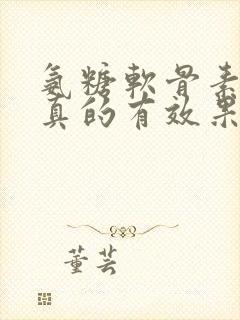 氨糖軟骨素
真的有效果
董芸